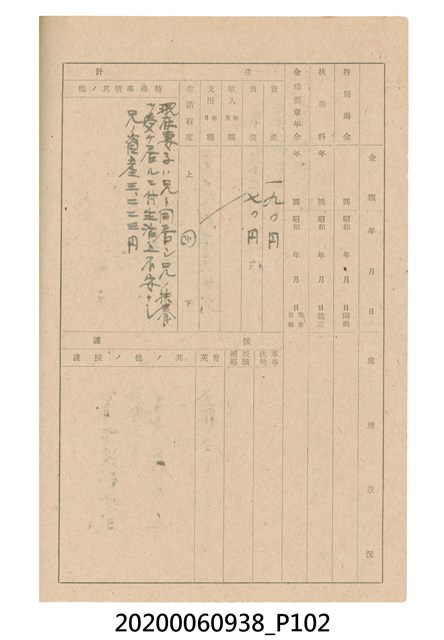 金額 年月日 處理狀況
特別賜金 圓 昭和 年 月 日
扶助料 年 圓 昭和 年 月 日 設定
金鵄勳章年金 年 圓 昭和 年 月 日
計 生
資產 一九〇円
負債 七〇円
收入 年 月 額
支出 年 月 額
生活程度 上 中 下
特殊事情其ノ他
現在妻子ハ兄ト同居シ兄ノ扶養
ヲ受ケ居ルニ付生活上不安ナシ
兄ノ資産三、二二三円
護 援
軍事扶助
育英
其ノ他ノ援護
20200060938_P102